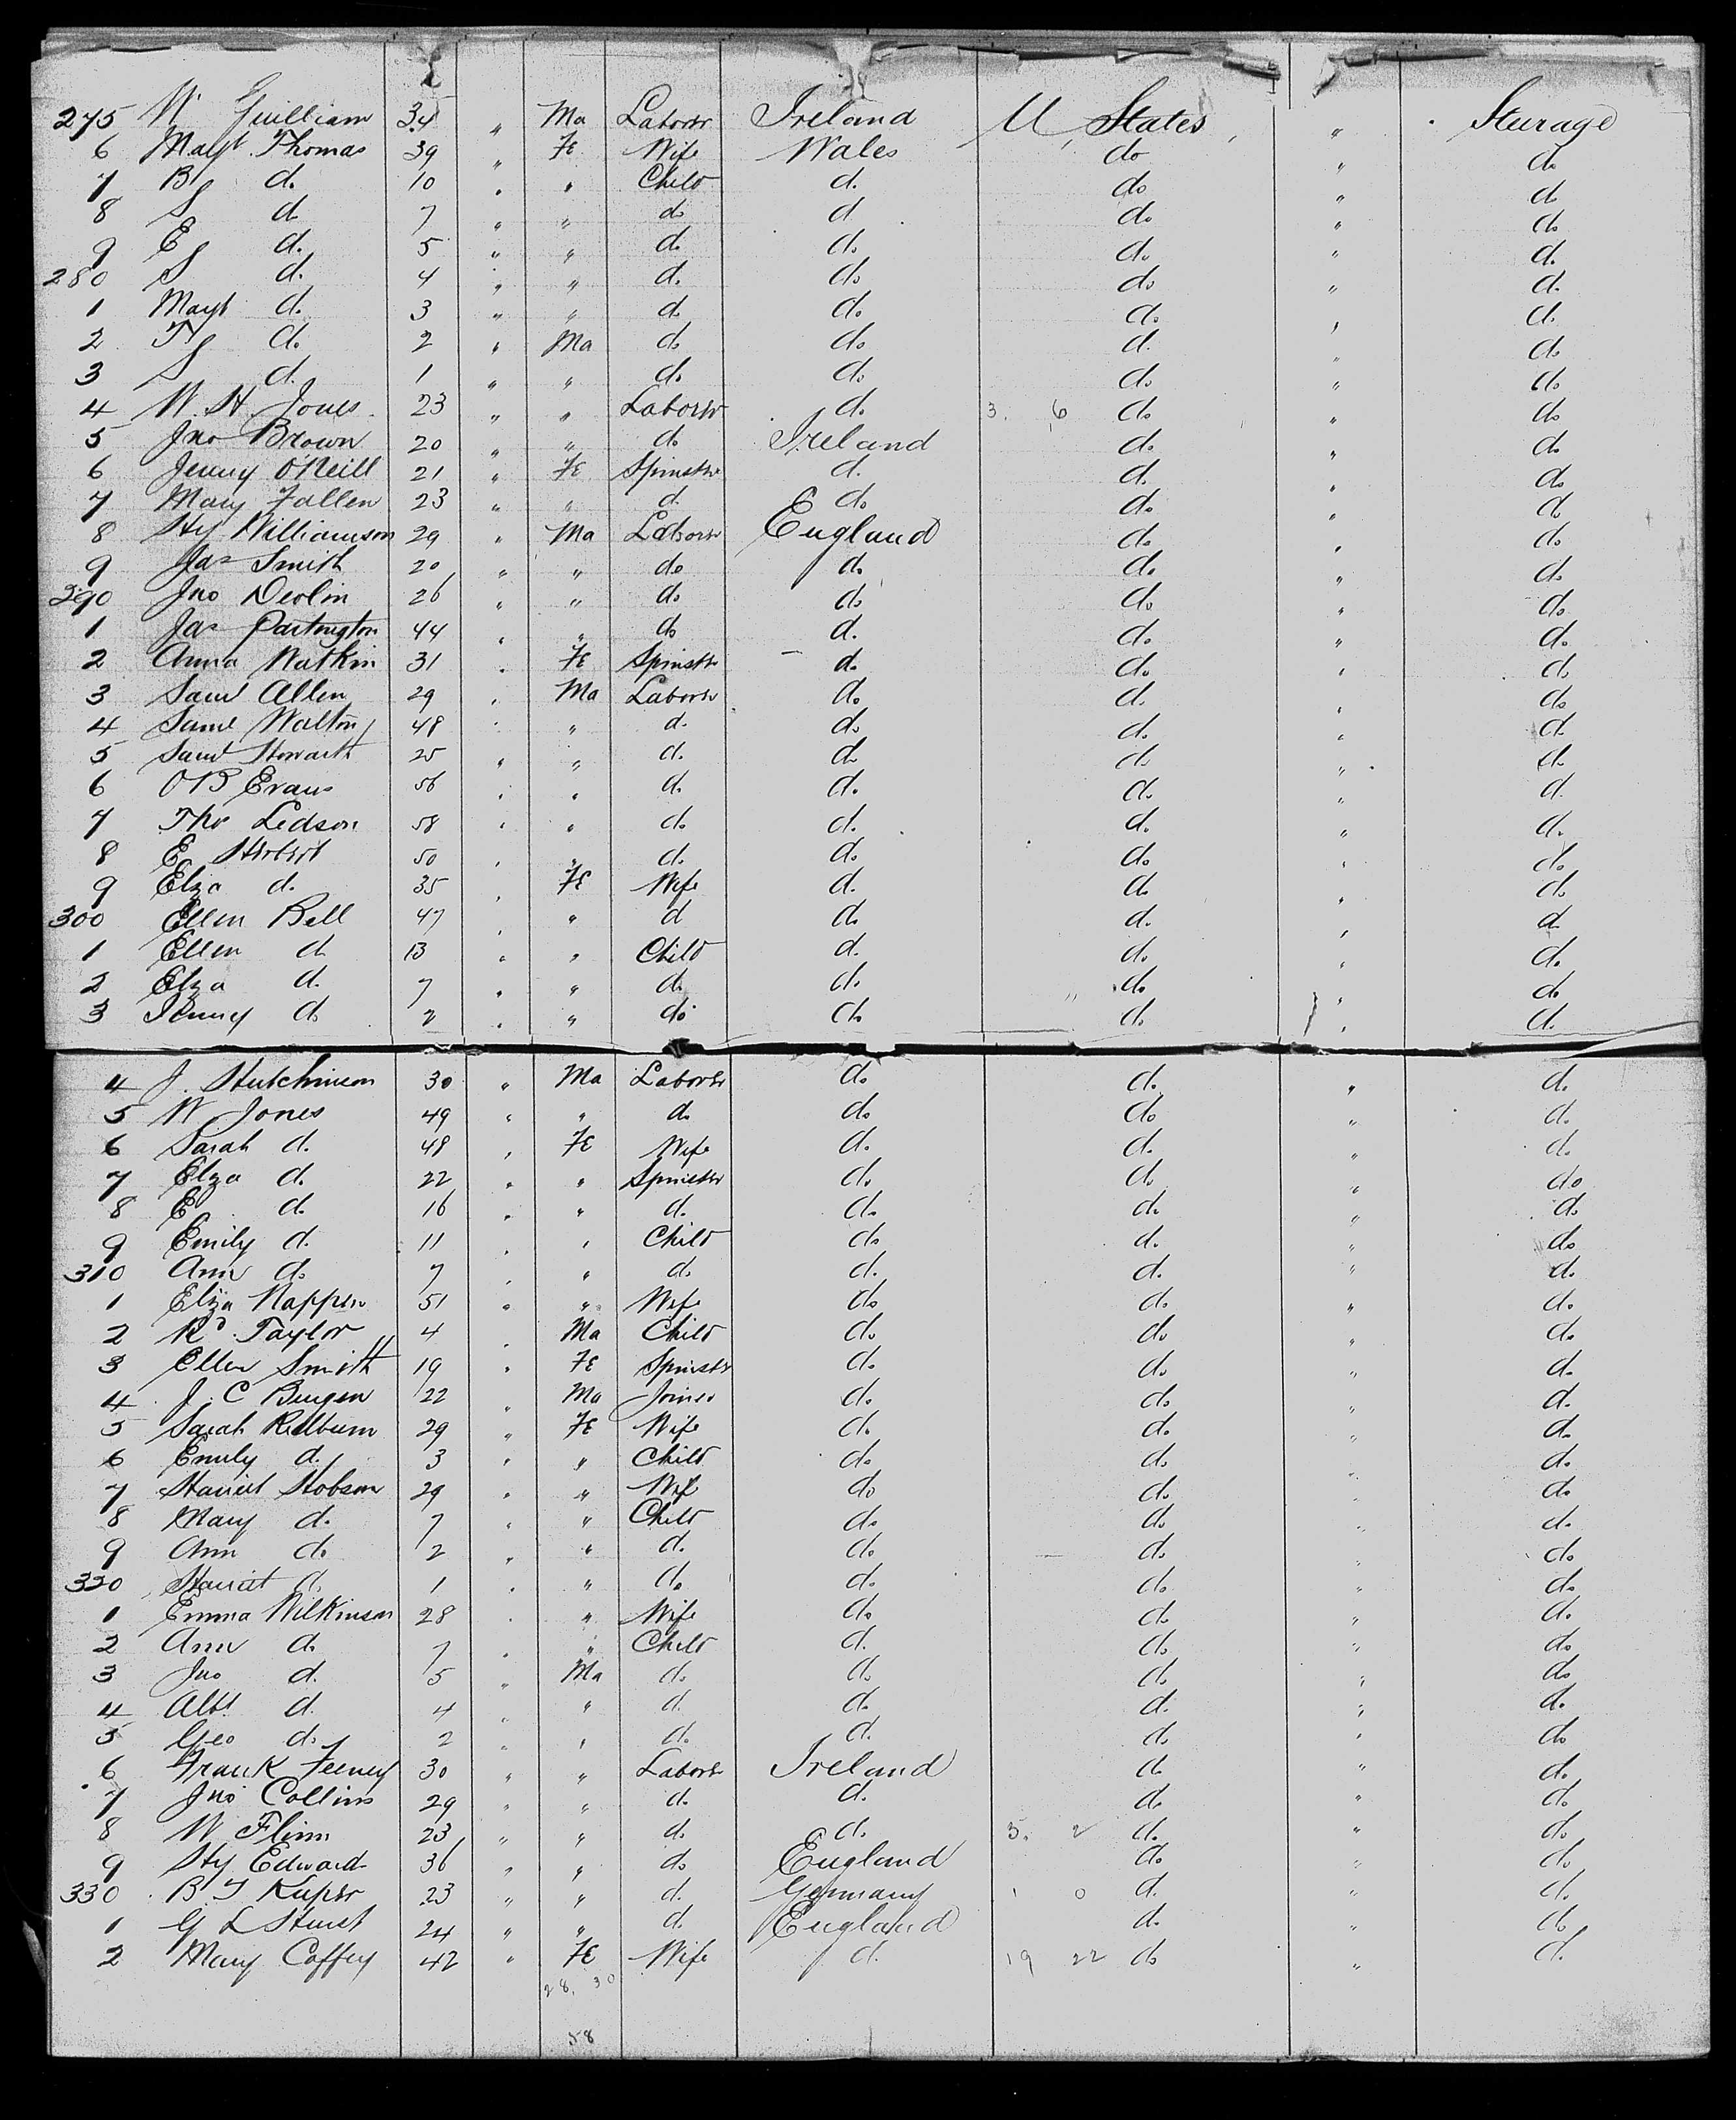 275 W Guilliam 34 " Ma Laborer Ireland U, States, " Steerage
6 Mayt Thomas 39 " Fe Wife Wales do " do
7 B d. 10 " " Child d. do " do
8 S d 7 " " do d do " do
9 E d. 5 " " d. d. do " d.
280 S d. 4 " " d. do do " d.
1 Mayt d. 3 " " d. do. d. " d.
2 T d. 2 " Ma do do d. " do
3 S d. 1 " " do do do " do
4 W. H. Jones 23 " " Laborer d. 3. 6 do " do
5 Jno Brown 20 " " do Ireland d. " d.
6 Jenny O'Neill 21 " Fe Spinster d. d. " do
7 Mary Fallen 23 " " d. do do " do
8 Hy Williamson 29 " Ma Laborer England do " do
9 Jas Smith 20 " " do do do. " do
290 Jno Devlin 26 " " do do do " do
1 Jas Partington 44 " " do d. do. " do.
2 Anna Watkin 31 " Fe Spinster d. do " do
3 Saml Allen 29 " Ma Laborer do d. " do
4 Saml Walton 48 " " d. do d. " d.
5 Saml Howarth 25 " " d. do do " d.
6 O B Evans 56 " " d. d. do " d.
7 Tho Ledson 58 " " do d. d. " d.
8 E Herbert 50 " " d. do do " do.
9 Elza d. 35 " Fe Wife d. do " do
300 Ellen Bell 47 " " d do d. " d.
1 Ellen d 13 " " Child d. do " d.
2 Elza d. 7 " " d. d. do " do
3 Jenny do 2 " " do do do " d.
4 J. Hutchinson 30 " Ma Laborer do d. " d.
5 W Jones 49 " " d. do do " d.
6 Sarah d. 48 " Fe Wife d. d. " d.
7 Elza d. 22 " " Spinster do do " do
8 E d. 16 " " d. do do " d.
9 Emily d. 11 " " Child do d. " do
310 Ann do 7 " " d. d. d. " d.
1 Eliza Napper 51 " " Wife do do " do
2 Rd Taylor 4 " Ma Child do do " do
3 Ellen Smith 19 " Fe Spinster do do " d.
4 J. C 22 " Ma Joiner do do " d.
5 Sarah 29 " Fe Wife do do " d.
6 Emily d. 3 " " Child do d. " d.
7 Harriet Hobson 29 " " Wife do do " d.
8 Mary d. 7 " " Child do do " d.
9 Ann do 2 " " d. do do " do
320 Harriet d. 1 " " do do do " do
1 Emma Wilkinson 28 " " Wife do do " do
2 Ann do 7 " " Child d. do " do
3 Jno d. 5 " Ma do do do " do
4 Albt d. 4 " " d. do d. " d.
5 Geo do 2 " " do d. do " do
6 Frank Feeney 30 " " Laborer Ireland d. " d.
7 Jno Collins 29 " " d. d. do " do
8 W Flinn 23 " " d. d. 3. 2 d. " do
9 Hy Edward 36 " " do England do " do
330 B J Kuper 23 " " d. Germany 1 0 d. " d.
1 G L 24 " " d England d. " do
2 Mary Coffey 42 " Fe Wife d. 19 22 do " d.
28, 30
58